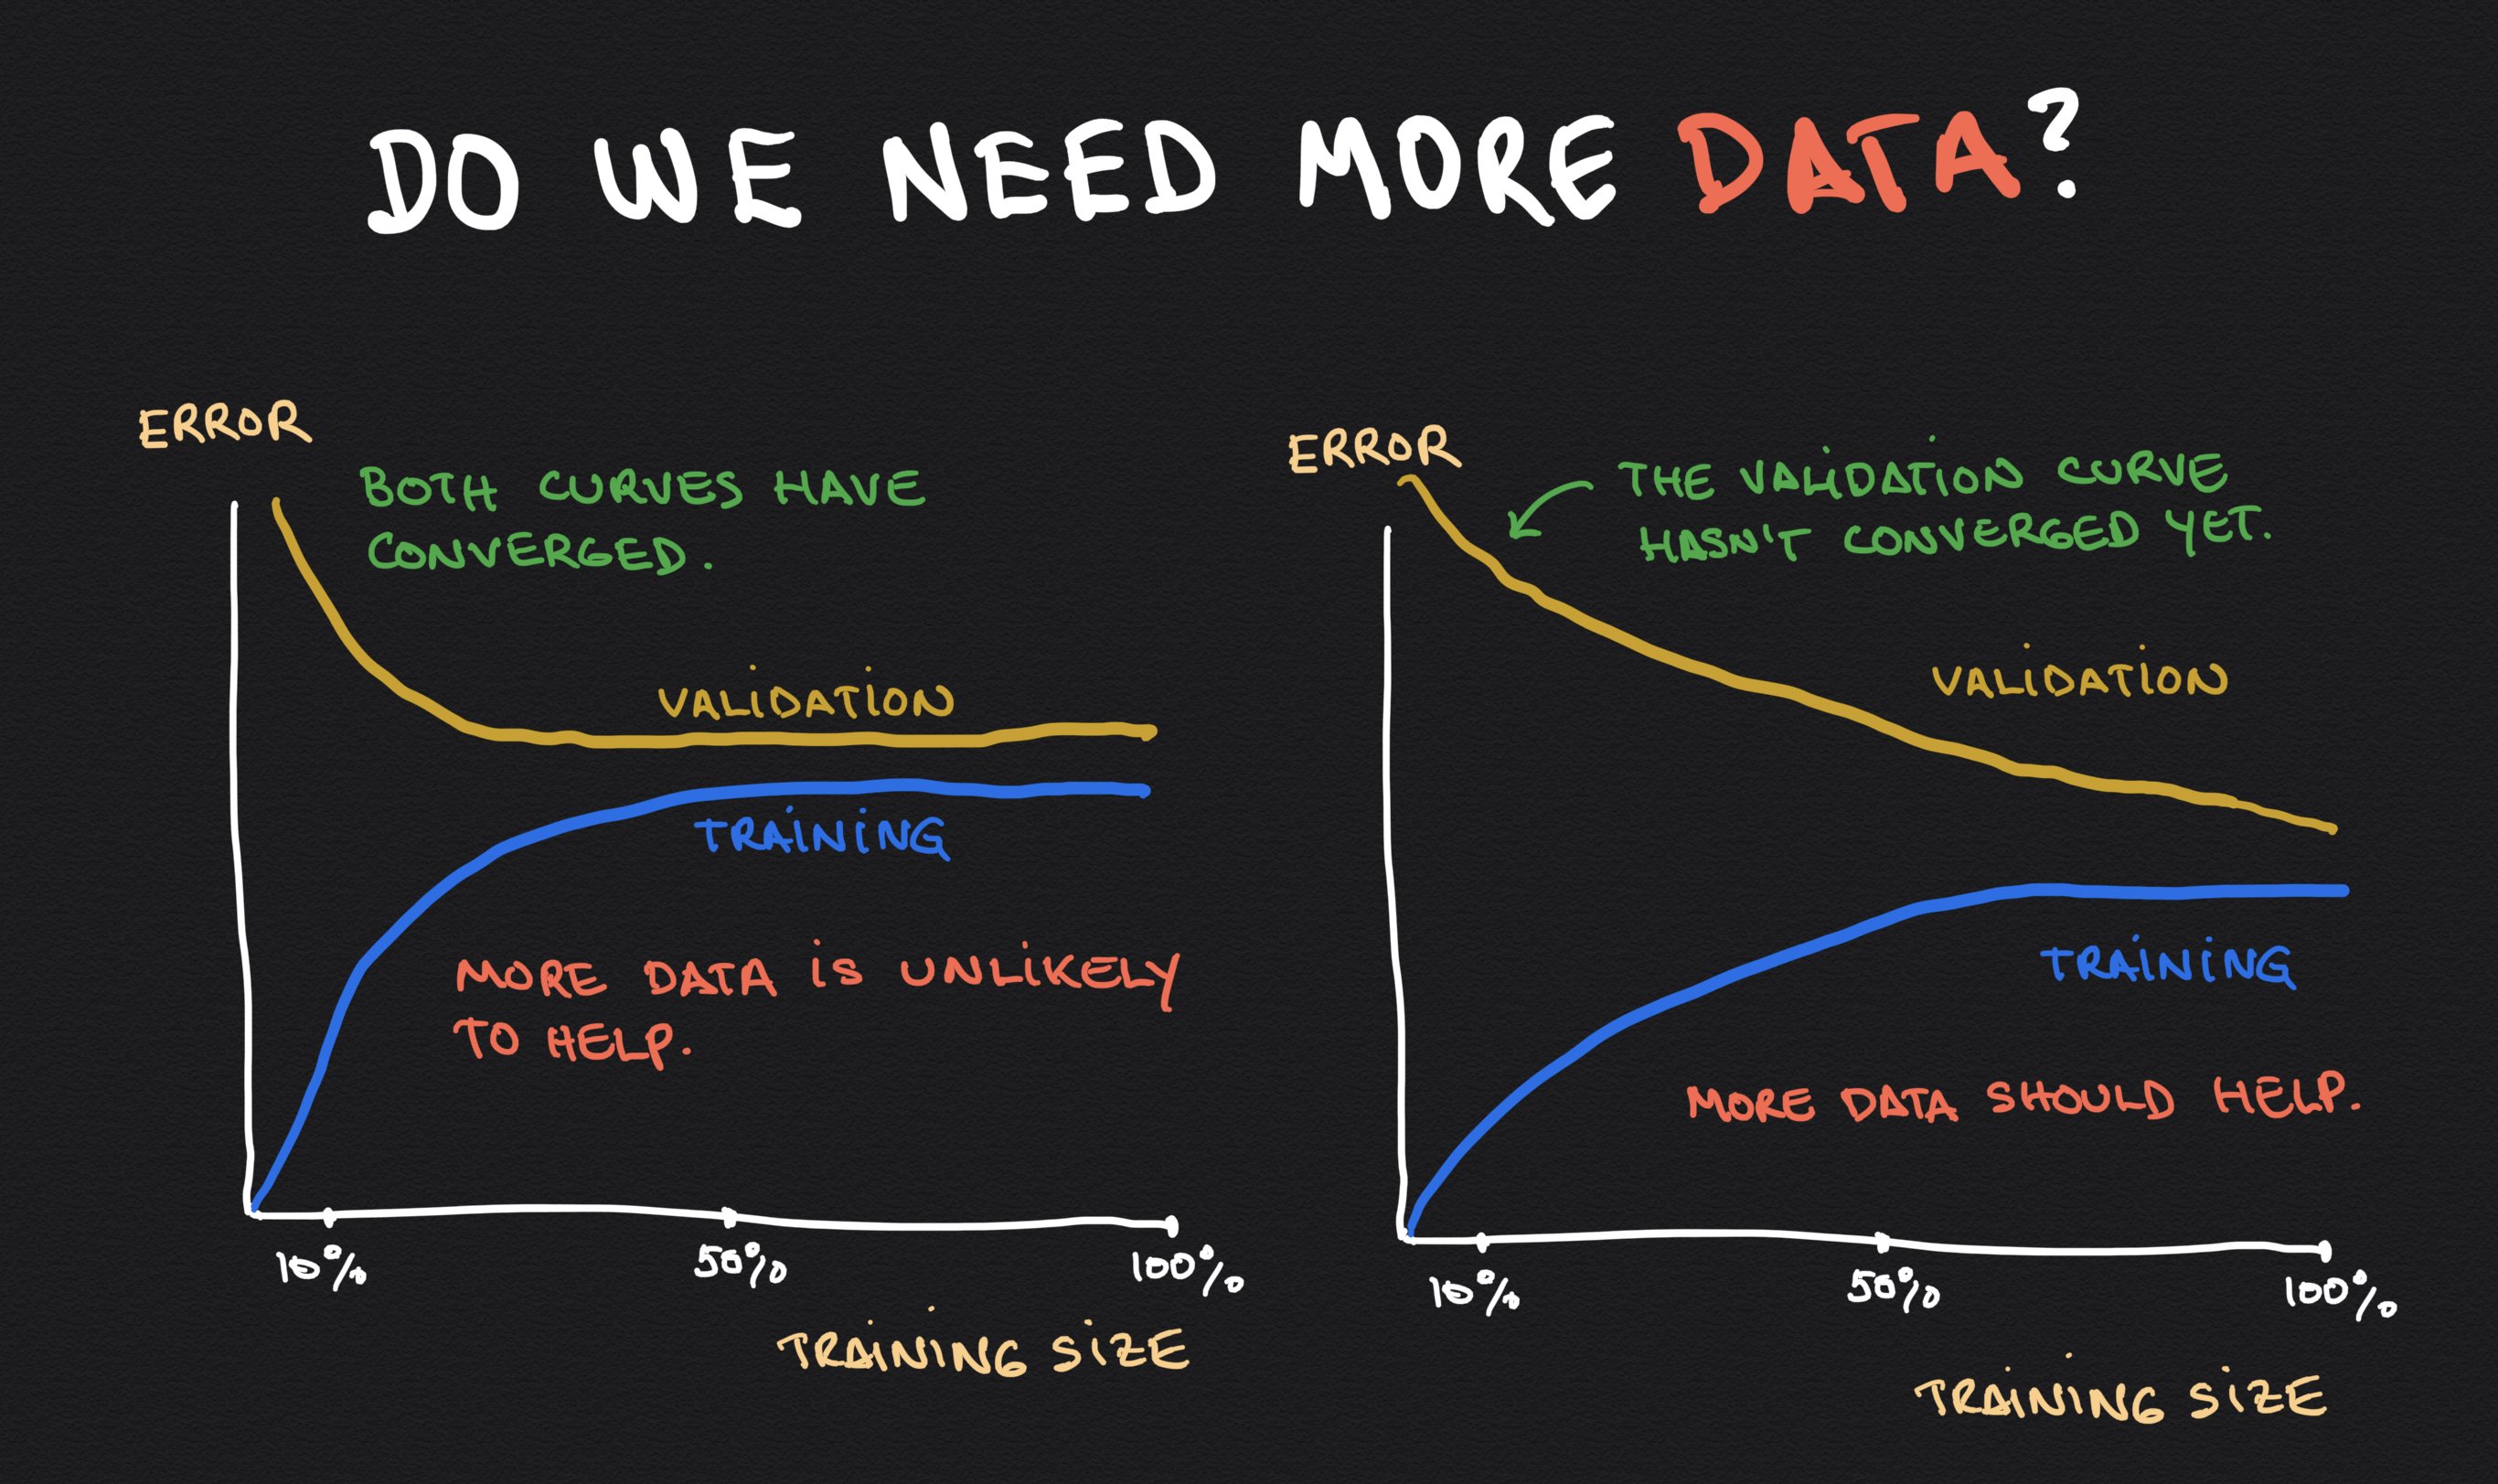 DO WE NEED MORE DATA?
ERROR
BOTH CURVES HAVE
CONVERGED.
VALiDATiON
TRAiNiNG
MORE DATA iS UNLiKELY
TO HELP.
10%
50%
100%
TRAiNiNG SiZE
ERROR
THE VALiDATiON CURVE
HASN'T CONVERGED YET.
VALiDATiON
TRAiNiNG
MORE DATA SHOULD HELP.
10%
50%
100%
TRAiNiNG SiZE